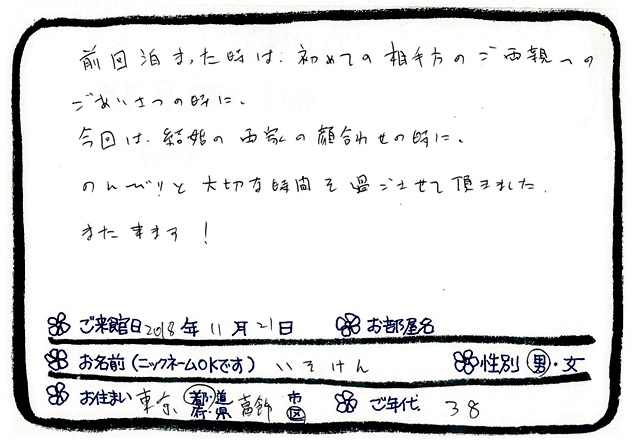 前回泊まった時は、初めての相手方のご両親への
ごあいさつの時に、
今回は、結婚の両家の顔合わせの時に、
のんびりと大切な時間を過ごさせて頂きました。
また来ます！
ご来館日 2018年 11月 21日 お部屋名
お名前（ニックネームOKです） いそけん 性別 男・女
お住まい 東京 都道府県 葛飾 市区 ご年代 38